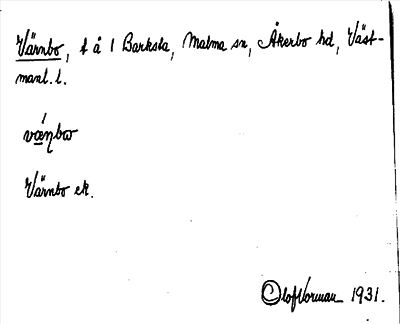 Värnbo, t å 1 Barksta, Malma sn, Åkerbo hd, Väst-
manl. l.
væ̀ɳbω
Värnbo ek.
Olof Vorman 1931.